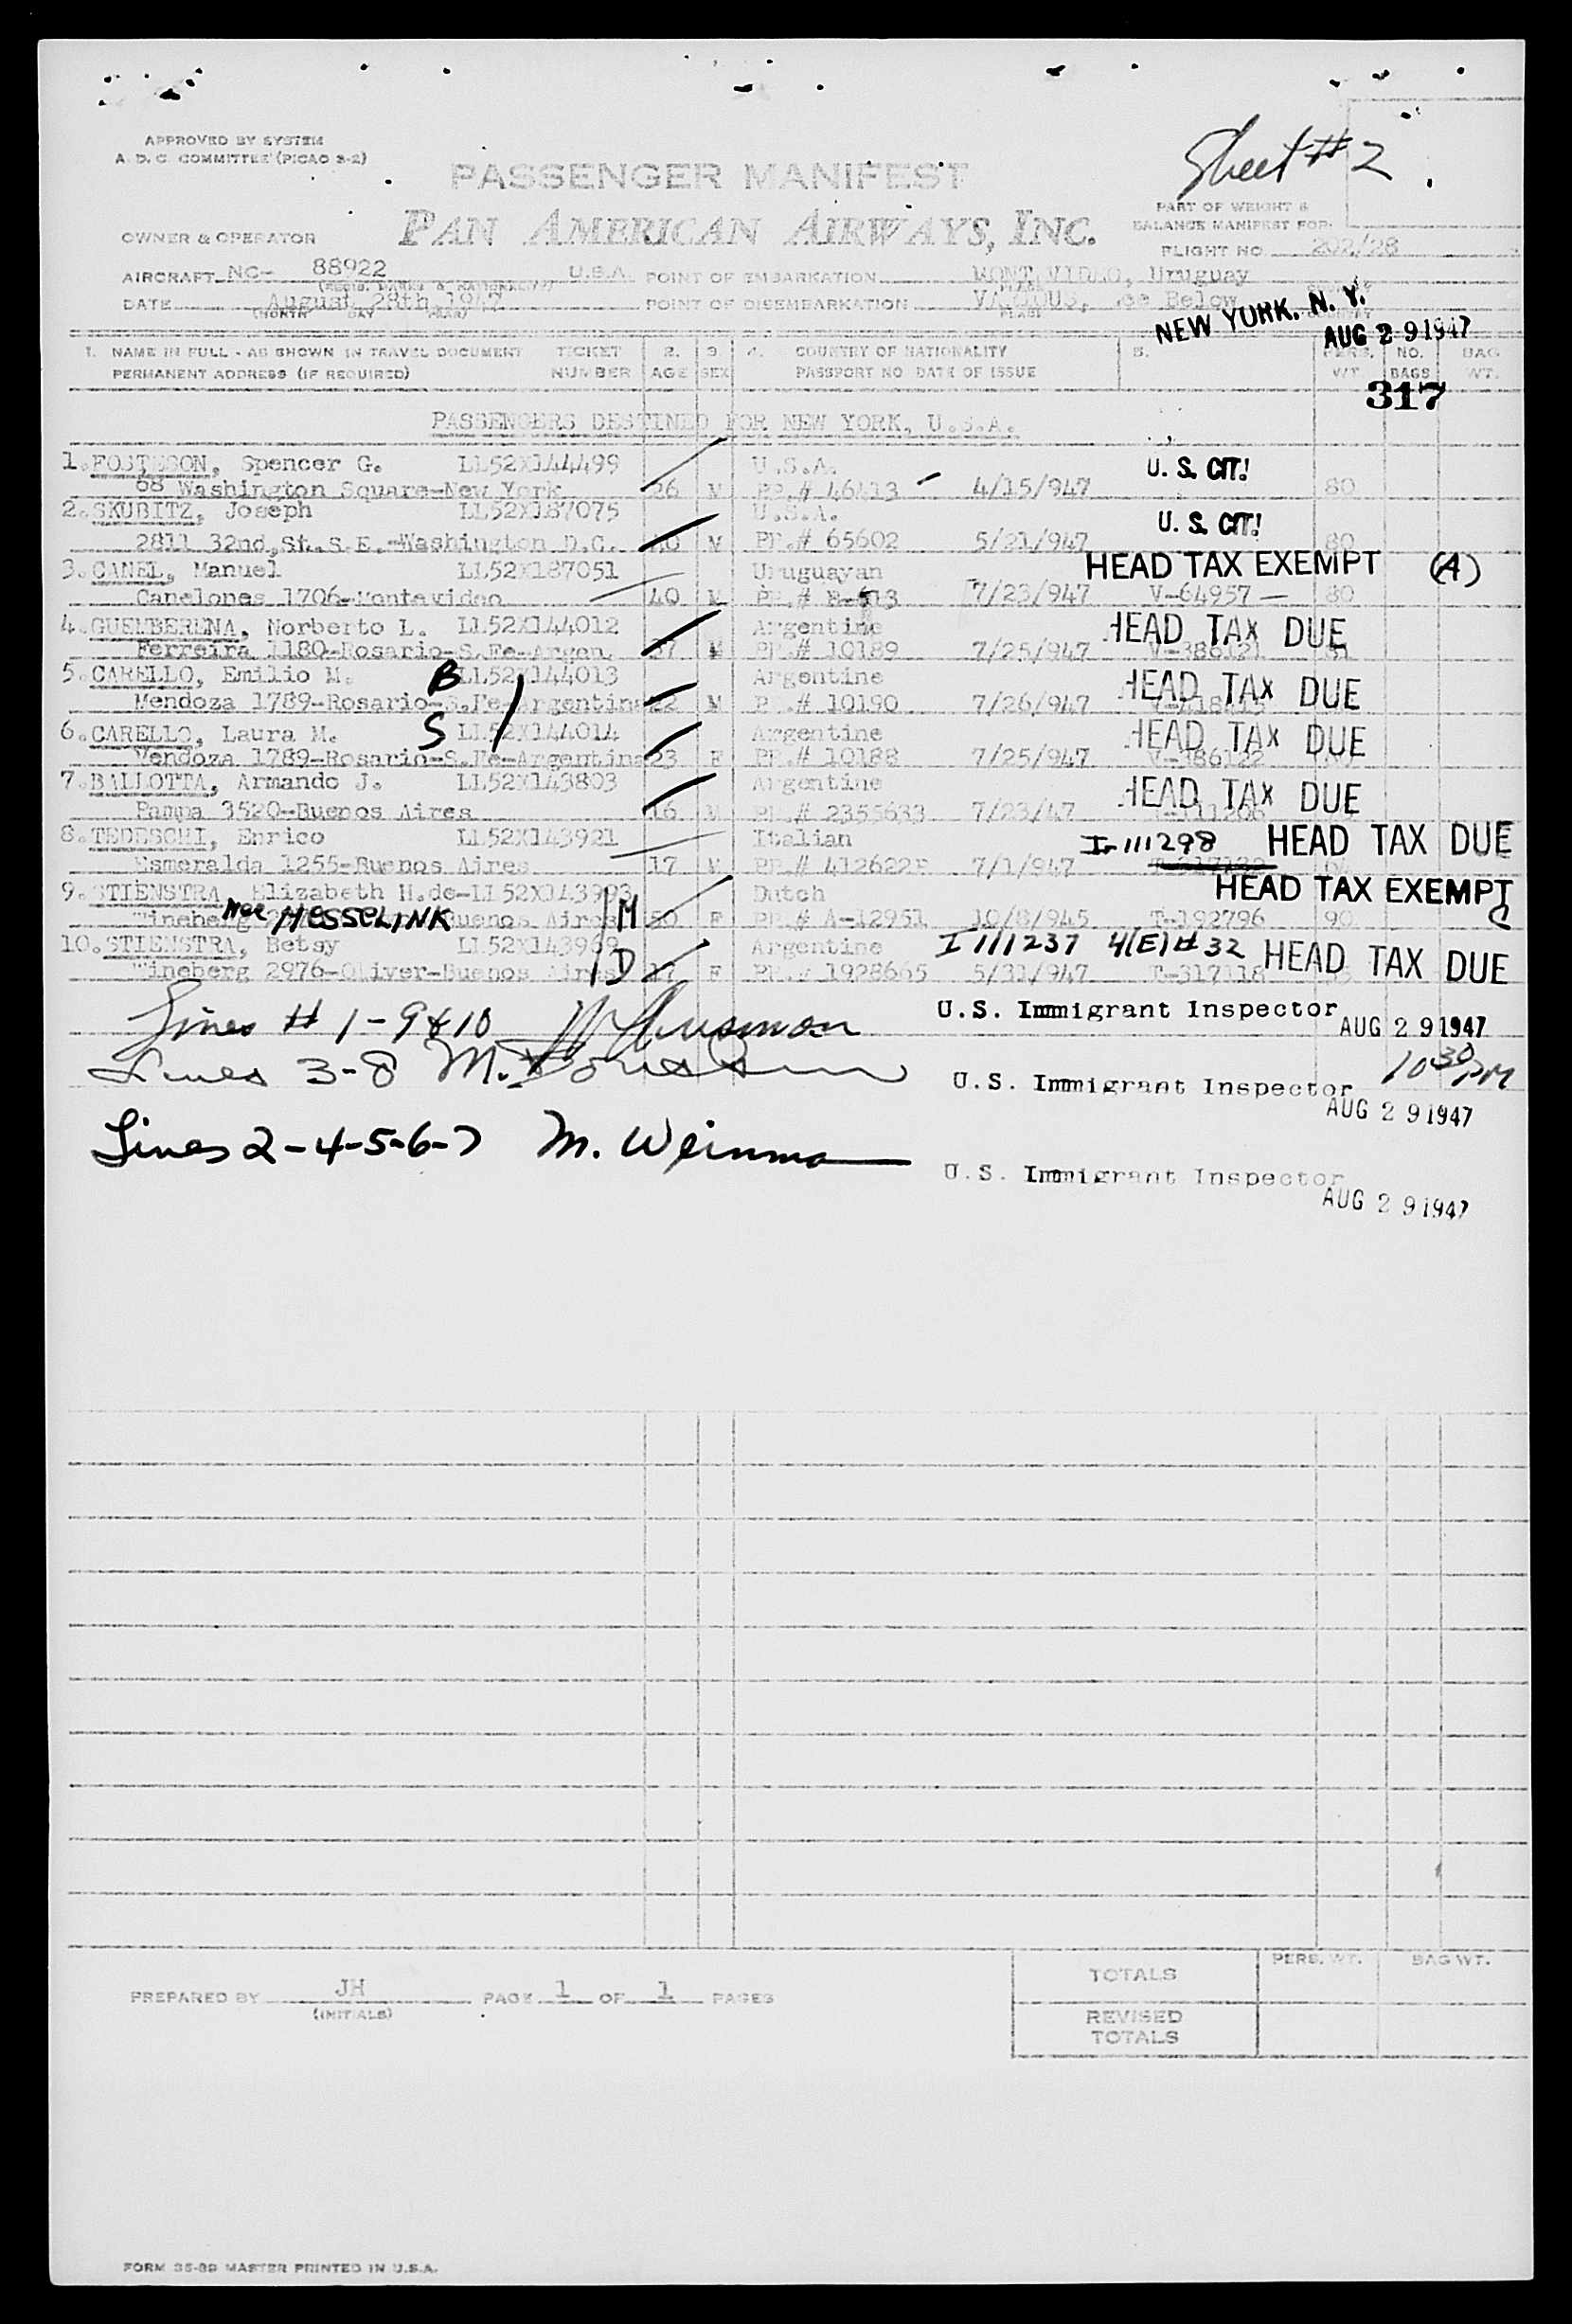 APPROVED BY SYSTEM
A. D. C. COMMITTEE (PICAO 3-2)
Sheet # 2
PASSENGER MANIFEST
PAN AMERICAN AIRWAYS, INC.
PART OF WEIGHT &
BALANCE MANIFEST FOR
OWNER & OPERATOR
FLIGHT NO. 202/28
AIRCRAFT NC- 88922 U.S.A. POINT OF EMBARKATION MONTEVIDEO, Uruguay
(REGIS. MARKS & NATIONALITY) PLACE
DATE August 28th, 1947 POINT OF DISEMBARKATION VARIOUS, See Below
(MONTH DAY YEAR) PLACE
NEW YORK, N. Y.
AUG 29 1947
1. NAME IN FULL - AS SHOWN IN TRAVEL DOCUMENT TICKET 2. 3 4. COUNTRY OF NATIONALITY 5. PERS. NO. BAG
PERMANENT ADDRESS (IF REQUIRED) NUMBER AGE SEX PASSPORT NO DATE OF ISSUE WT. BAGS WT.
317
PASSENGERS DESTINED FOR NEW YORK, U.S.A.
1. Spencer G. LL52X144499 U.S.A. U. S. CIT!
68 Washington Square-New York 26 M PP.# 46413 4/15/947 80
2. SKUBITZ, Joseph LL52X187075 U.S.A. U. S. CIT!
2811 32nd,St.S.E.-Washington D.C. 40 M PP.# 65602 5/21/947 80
3. CANEL, Manuel LL52X187051 Uruguayan HEAD TAX EXEMPT (A)
Canelones 1706-Montevideo 40 M PP.# 7/23/947 V-64957 — 80
4. GUEMBERENA, Norberto L. LL52X144012 Argentine HEAD TAX DUE
Ferreira 1180-Rosario-S.Fe-Argen. 37 M PP.# 10189 7/25/947 V-386121 81
5. CARELLO, Emilio M. B LL52X144013 Argentine HEAD TAX DUE
Mendoza 1789-Rosario-S.Fe-Argentina 22 M PP.# 10190 7/26/947
6. CARELLO, Laura M. S LL52X144014 Argentine HEAD TAX DUE
Mendoza 1789-Rosario-S.Fe-Argentina 23 F PP.# 10188 7/25/947 V-386122
7. BALLOTTA, Armando J. LL52X143803 Argentine HEAD TAX DUE
Pampa 3520-Buenos Aires 16 M PP.# 2355633 7/23/47
8. TEDESCHI, Enrico LL52X143921 Italian I-111298 HEAD TAX DUE
Esmeralda 1255-Buenos Aires 17 M PP.# 412622P 7/1/947
9. STIENSTRA, Elizabeth H.de-LL52X143993 Dutch HEAD TAX EXEMPT
Wineberg nee HESSELINK Buenos Aires M 50 F PP.# A-12951 10/8/945 T-192796 90 C
10. STIENSTRA, Betsy LL52X143969 Argentine I 111237 4(E)#32 HEAD TAX DUE
Wineberg 2976-Oliver-Buenos Aires D 17 F PP.# 1928665 5/31/947 T-317118
Lines # 1-9&10 U.S. Immigrant Inspector AUG 29 1947
10 30 PM
Lines 3-8 M. U.S. Immigrant Inspector
AUG 29 1947
Lines 2-4-5-6-7 M. Weinman U.S. Immigrant Inspector
AUG 29 1947
PERS. WT. BAG WT.
TOTALS
PREPARED BY JH PAGE 1 OF 1 PAGES
(INITIALS)
REVISED
TOTALS
FORM 35-39 MASTER PRINTED IN U.S.A.